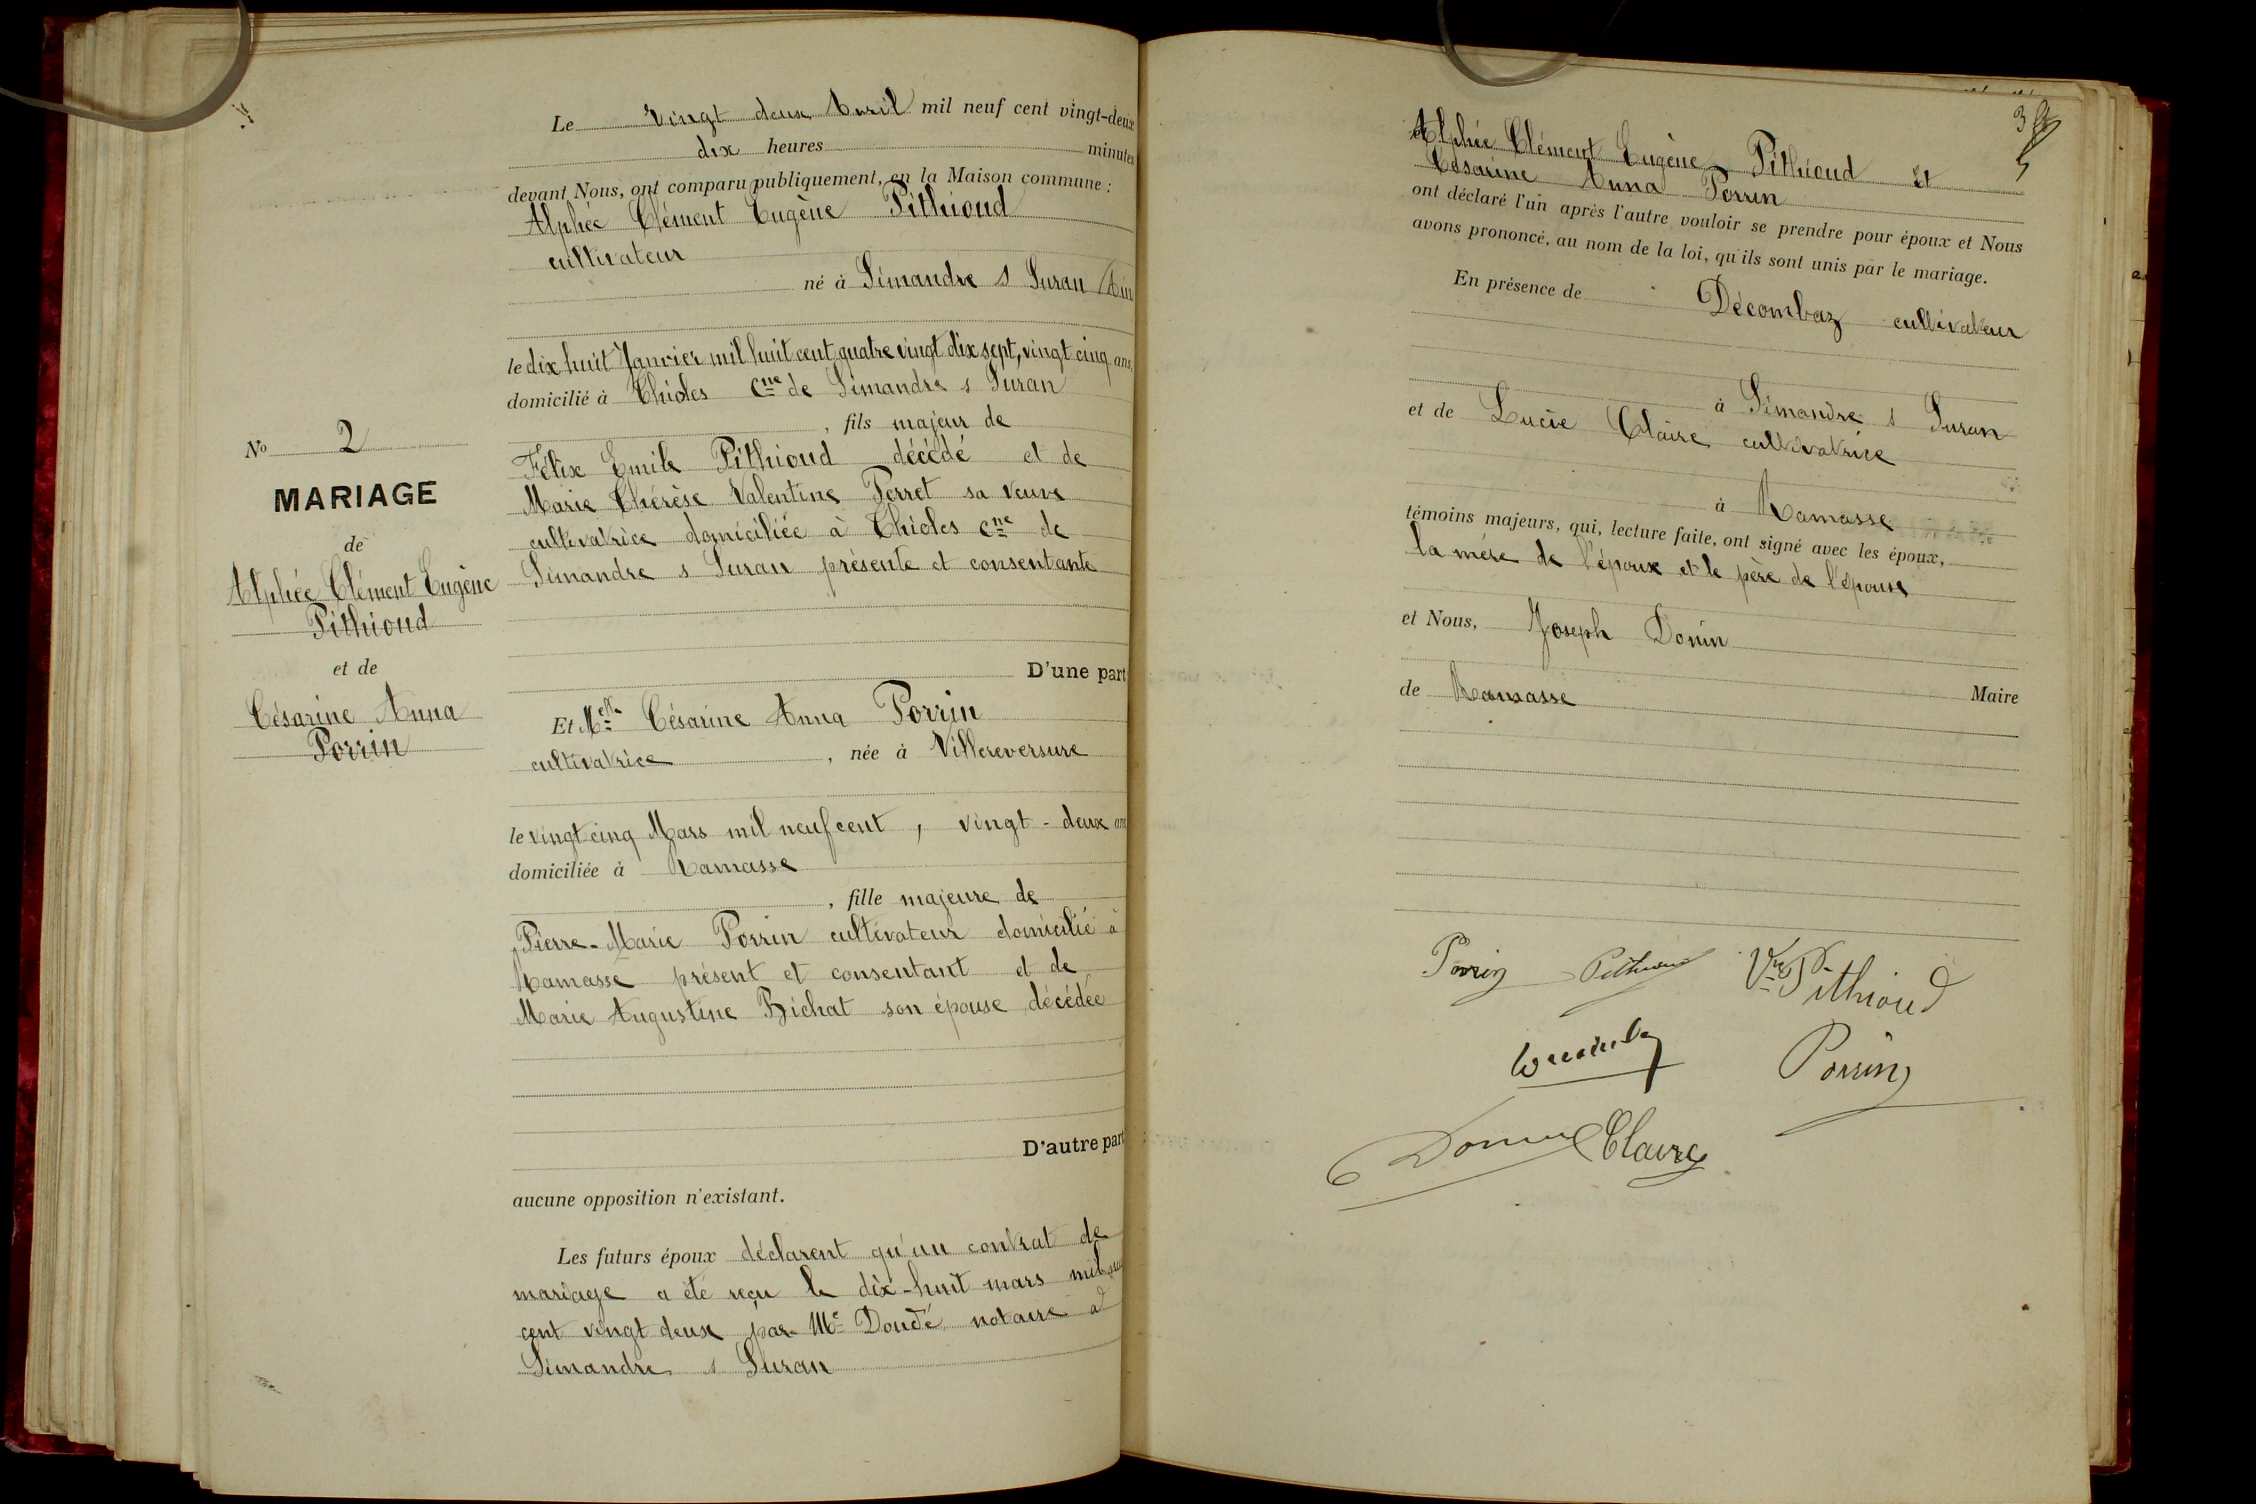 Le vingt deux Avril mil neuf cent vingt-deux
dix heures minutes
devant Nous, ont comparu publiquement, en la Maison commune :
Alphée Clément Eugène Pithioud
cultivateur
né à Simandre s Suran (Ain
le dix huit Janvier mil huit cent quatre vingt dix sept, vingt cinq ans,
domicilié à Thioles cne de Simandre s Suran
, fils majeur de
Félix Emile Pithioud décédé et de
Marie Thérèse Valentine Perret sa veuve
cultivatrice domiciliée à Thioles cne de
Simandre s Suran présente et consentante
D'une part
No 2
MARIAGE
de
Alphée Clément Eugène
Pithioud
et de
Césarine Anna
Porrin
Et Melle Césarine Anna Porrin
cultivatrice , née à Villereversure
le vingt cinq Mars mil neuf cent , vingt - deux ans
domiciliée à Ramasse
, fille majeure de
Pierre-Marie Porrin cultivateur domicilié à
Ramasse présent et consentant et de
Marie Augustine Bichat son épouse décédée
D'autre part
aucune opposition n'existant.
Les futurs époux déclarent qu'un contrat de
mariage a été reçu le dix-huit mars mil neuf
cent vingt deux par Me Doudé notaire à
Simandre s Suran
Alphée Clément Eugène Pithioud et
Césarine Anna Porrin
ont déclaré l'un après l'autre vouloir se prendre pour époux et Nous
avons prononcé, au nom de la loi, qu'ils sont unis par le mariage.
En présence de Décombaz cultivateur
à Simandre s Suran
et de Lucie Claire cultivatrice
à Ramasse
témoins majeurs, qui, lecture faite, ont signé avec les époux,
la mère de l'époux et le père de l'épouse
et Nous, Joseph Donin
de Ramasse Maire
Porrin Pithioud Vve Pithioud
Porrin
Donin Claire